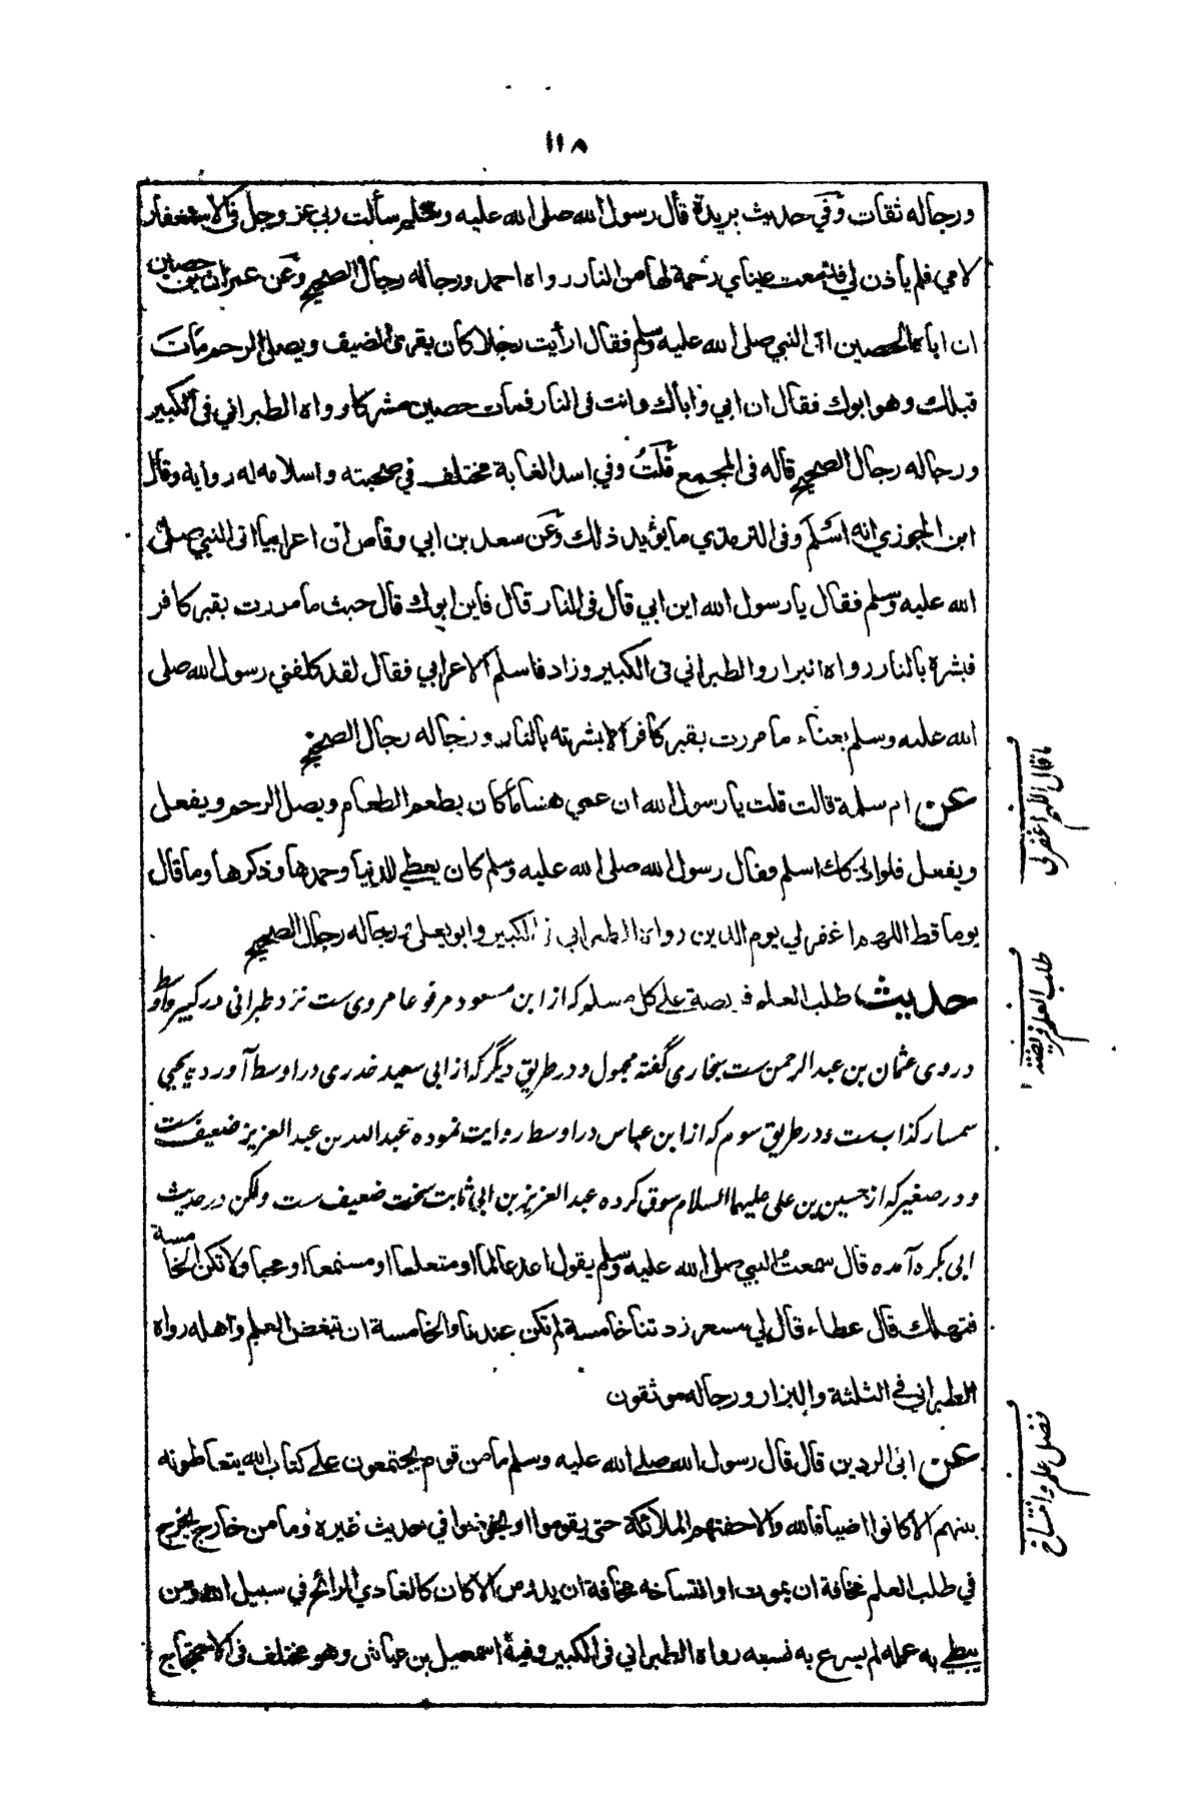 ١١٨
ورجاله ثقات وفي حديث بريدة قال رسول الله صلى الله عليه وسلم سألت ربي عز وجل فى الاستغفار
لامي فلم يأذن لي فدمعت عيناي رحمة لها من النار رواه احمد ورجاله رجال الصحيح وعن عمران بن حصين
ان اباه الحصين اتى النبي صلى الله عليه وسلم فقال ارأيت رجلا كان يقرى الضيف ويصل الرحم مات
قبلك وهو ابوك فقال ان ابي واباك وانت فى النار فمات حصين مشركا رواه الطبراني فى الكبير
ورجاله رجال الصحيح قاله فى المجمع قلت وفي اسد الغابة مختلف في صحبته واسلامه له رواية وقال
ابن الجوزي انه اسلم وفى الترمذي ما يؤيد ذلك وعن سعد بن ابي وقاص ان اعرابيا اتى النبي صلى
الله عليه وسلم فقال يا رسول الله اين ابي قال فى النار قال فاين ابوك قال حيث ما مررت بقبر كافر
فبشره بالنار رواه البزار والطبراني فى الكبير وزاد فاسلم الاعرابي فقال لقد كلفني رسول الله صلى
الله عليه وسلم بعناء ما مررت بقبر كافر الا بشرته بالنار ورجاله رجال الصحيح
عن ام سلمة قالت قلت يا رسول الله ان عمي هشاما كان يطعم الطعام ويصل الرحم ويفعل
ويفعل فلو ادركك اسلم فقال رسول الله صلى الله عليه وسلم كان يعطي للدنيا وحمدها وذكرها وما قال
يوما قط اللهم اغفر لي يوم الدين رواه الطبراني فى الكبير وابو يعلى ورجاله رجال الصحيح
حديث طلب العلم فريضة على كل مسلم كه از ابن مسعود مرفوعا مروى ست نزد طبرانى در كبير واوسط
دروى عثمان بن عبد الرحمن ست بخارى گفته مجهول ودر طريق ديگر كه از ابى سعيد خدرى در اوسط آورده يحيى
سمسار كذاب ست ودر طريق سوم كه از ابن عباس در اوسط روايت نموده عبد الله بن عبد العزيز ضعيف ست
ودر صغير كه از حسين بن على عليهما السلام سوق كرده عبد العزيز بن ابى ثابت سخت ضعيف ست ولكن در حديث
ابى بكره آمده قال سمعت النبي صلى الله عليه وسلم يقول اغد عالما او متعلما او مستمعا او محبا ولا تكن الخامسة
فتهلك قال عطاء قال لي مسعر زدتنا خامسة لم تكن عندنا والخامسة ان تبغض العلم واهله رواه
الطبراني فى الثلثة والبزار ورجاله موثقون
عن ابى الردين قال قال رسول الله صلى الله عليه وسلم ما من قوم يجتمعون على كتاب الله يتعاطونه
بينهم الا كانوا اضيافا لله والا حفتهم الملائكة حتى يقوموا او يخوضوا في حديث غيره وما من خارج يخرج
في طلب العلم مخافة ان يموت او انتساخه مخافة ان يدرس الا كان كالغادي الرائح في سبيل الله ومن
يبطي به عمله لم يسرع به نسبه رواه الطبراني فى الكبير وفيه اسمعيل بن عياش وهو مختلف فى الاحتجاج
ما قال اللهم اغفر لى
طلب العلم فريضة
فضل علم وانتساخ